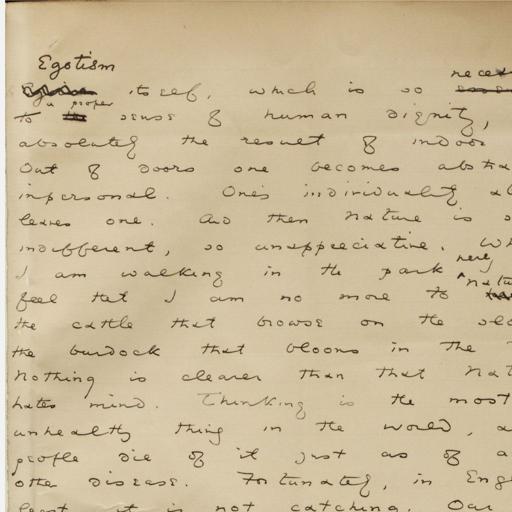 Egotism
itself, which is so neces
to a proper sense of human dignity,
absolutely the result of indoor
Out of doors one becomes abstra
impersonal. One's individuality
leaves one. And then Nature is so
indifferent, so unappreciative. Wh
I am walking in the park here,
feel that I am no more to Natu
the cattle that browse on the slo
the burdock that blooms in the
Nothing is clearer than that Nat
hates mind. Thinking is the most
unhealthy thing in the world, a
people die of it just as of a
other disease. Fortunately, in Eng
least it is not catching. Our